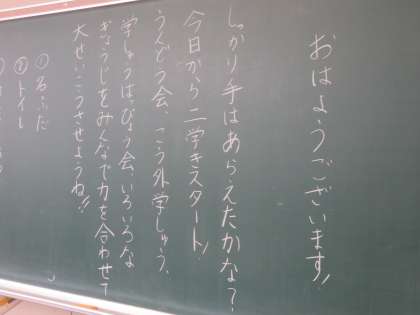 おはようございます!
しっかり手はあらえたかな?
今日から二学きスタート!
うんどう会、こう外学しゅう、
学しゅうはっぴょう会、いろいろな
ぎょうじをみんなで力を合わせて
大せいこうさせようね!!
①名ふだ
②トイレ